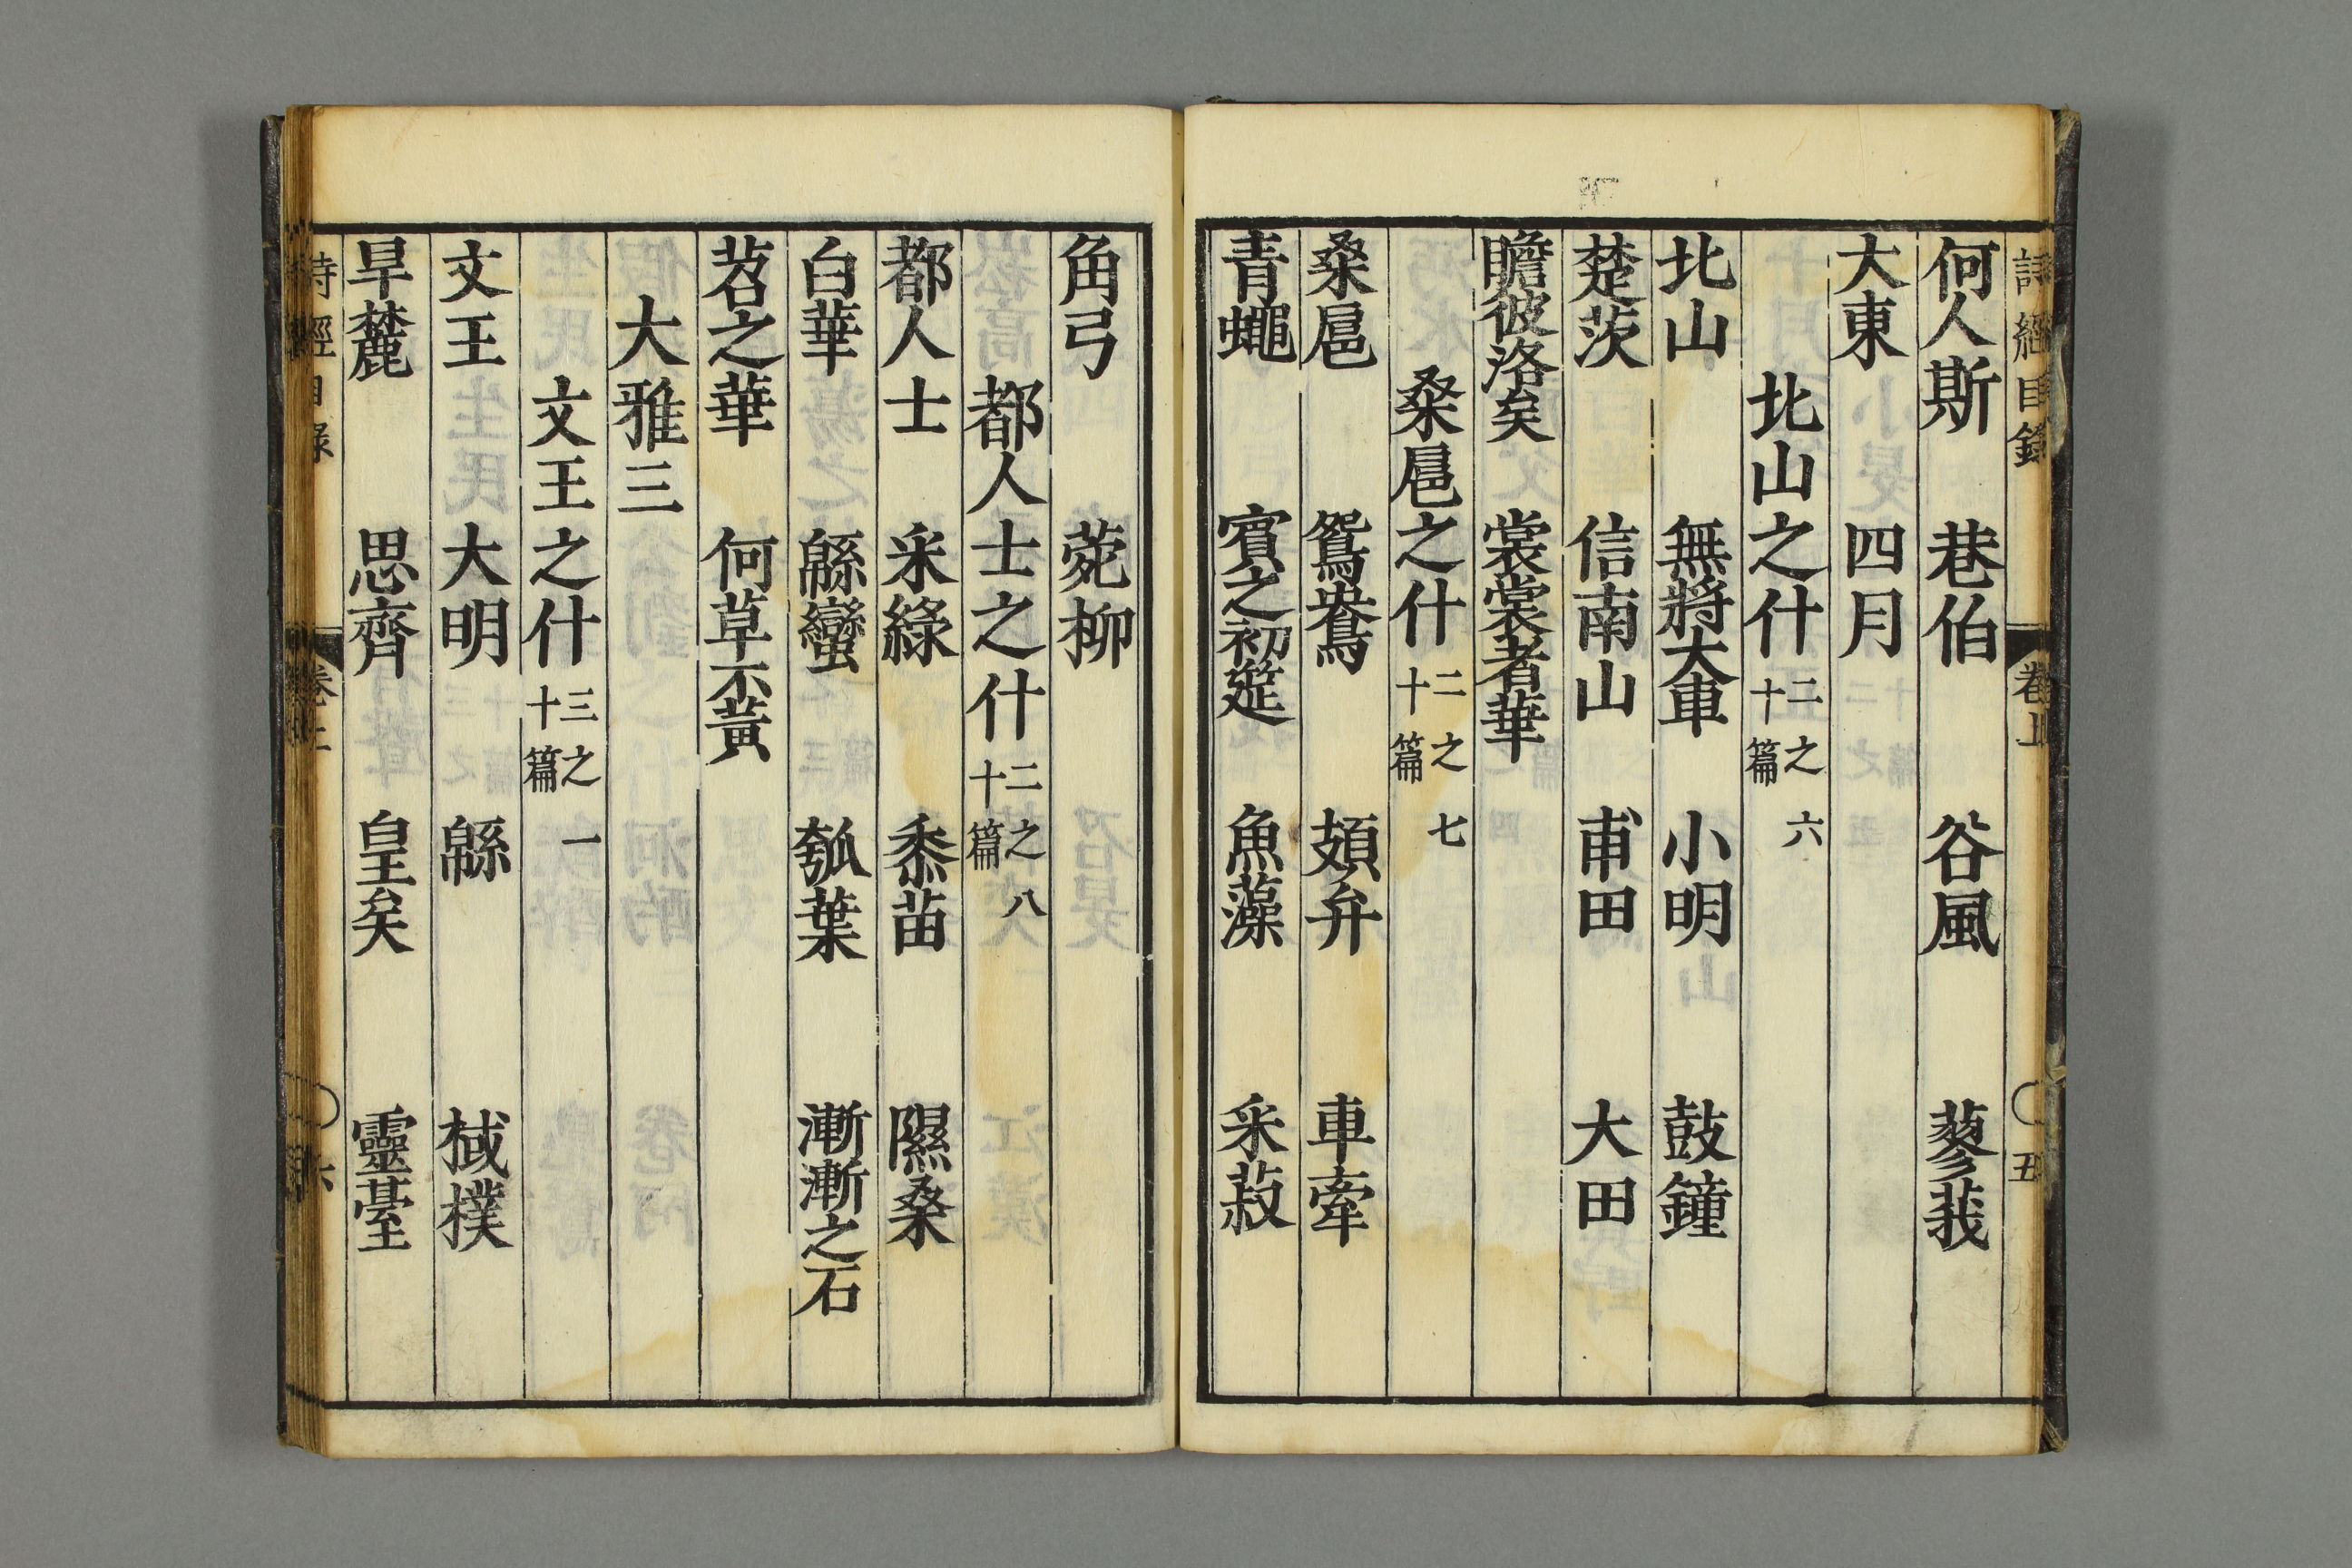 詩經目錄 卷上 五
何人斯 巷伯 谷風 蓼莪
大東 四月
北山之什二之六十篇
北山 無將大車 小明 鼓鐘
楚茨 信南山 甫田 大田
瞻彼洛矣 裳裳者華
桑扈之什二之七十篇
桑扈 鴛鴦 頍弁 車舝
青蠅 賓之初筵 魚藻 采菽
角弓 菀柳
都人士之什二之八十篇
都人士 采綠 黍苗 隰桑
白華 緜蠻 瓠葉 漸漸之石
苕之華 何草不黃
大雅三
文王之什三之一十篇
文王 大明 緜 棫樸
旱麓 思齊 皇矣 靈臺
詩經目錄 卷上 六